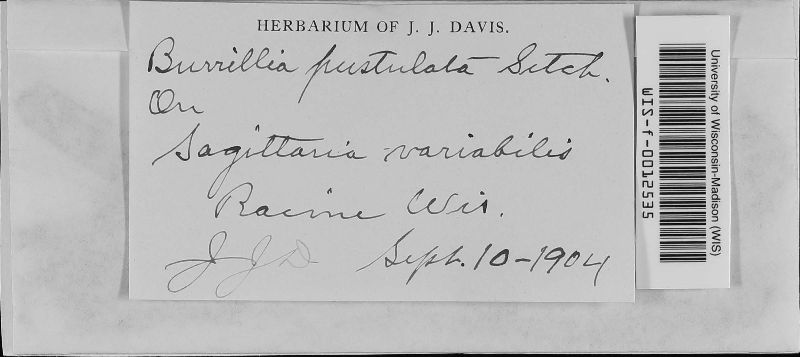 HERBARIUM OF J. J. DAVIS.
Burrillia pustulata Setch.
On
Sagittaria variabilis
Racine Wis.
J J D Sept. 10-1904
University of Wisconsin-Madison (WIS)
WIS-f-0012535